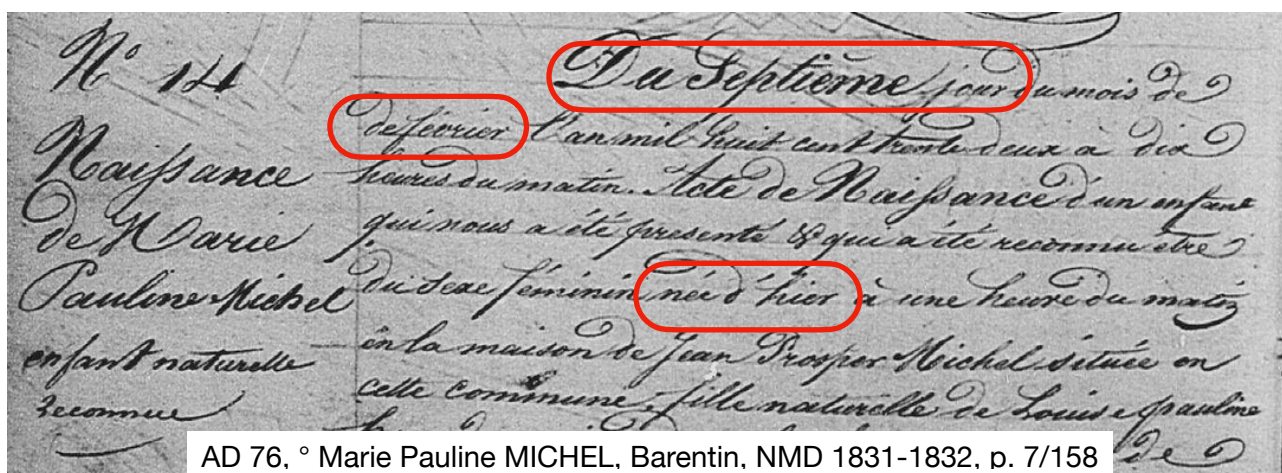 N° 14
Naissance
de Marie
Pauline Michel
enfant naturelle
reconnue
Du Septième jour du mois de
de février l'an mil huit cent trente deux à dix
heures du matin. Acte de Naissance d'un enfant
qui nous a été présenté & qui a été reconnu être
du sexe féminin née d'hier à une heure du matin
en la maison de Jean Prosper Michel située en
cette commune, fille naturelle de Louise pauline
de
AD 76, ° Marie Pauline MICHEL, Barentin, NMD 1831-1832, p. 7/158